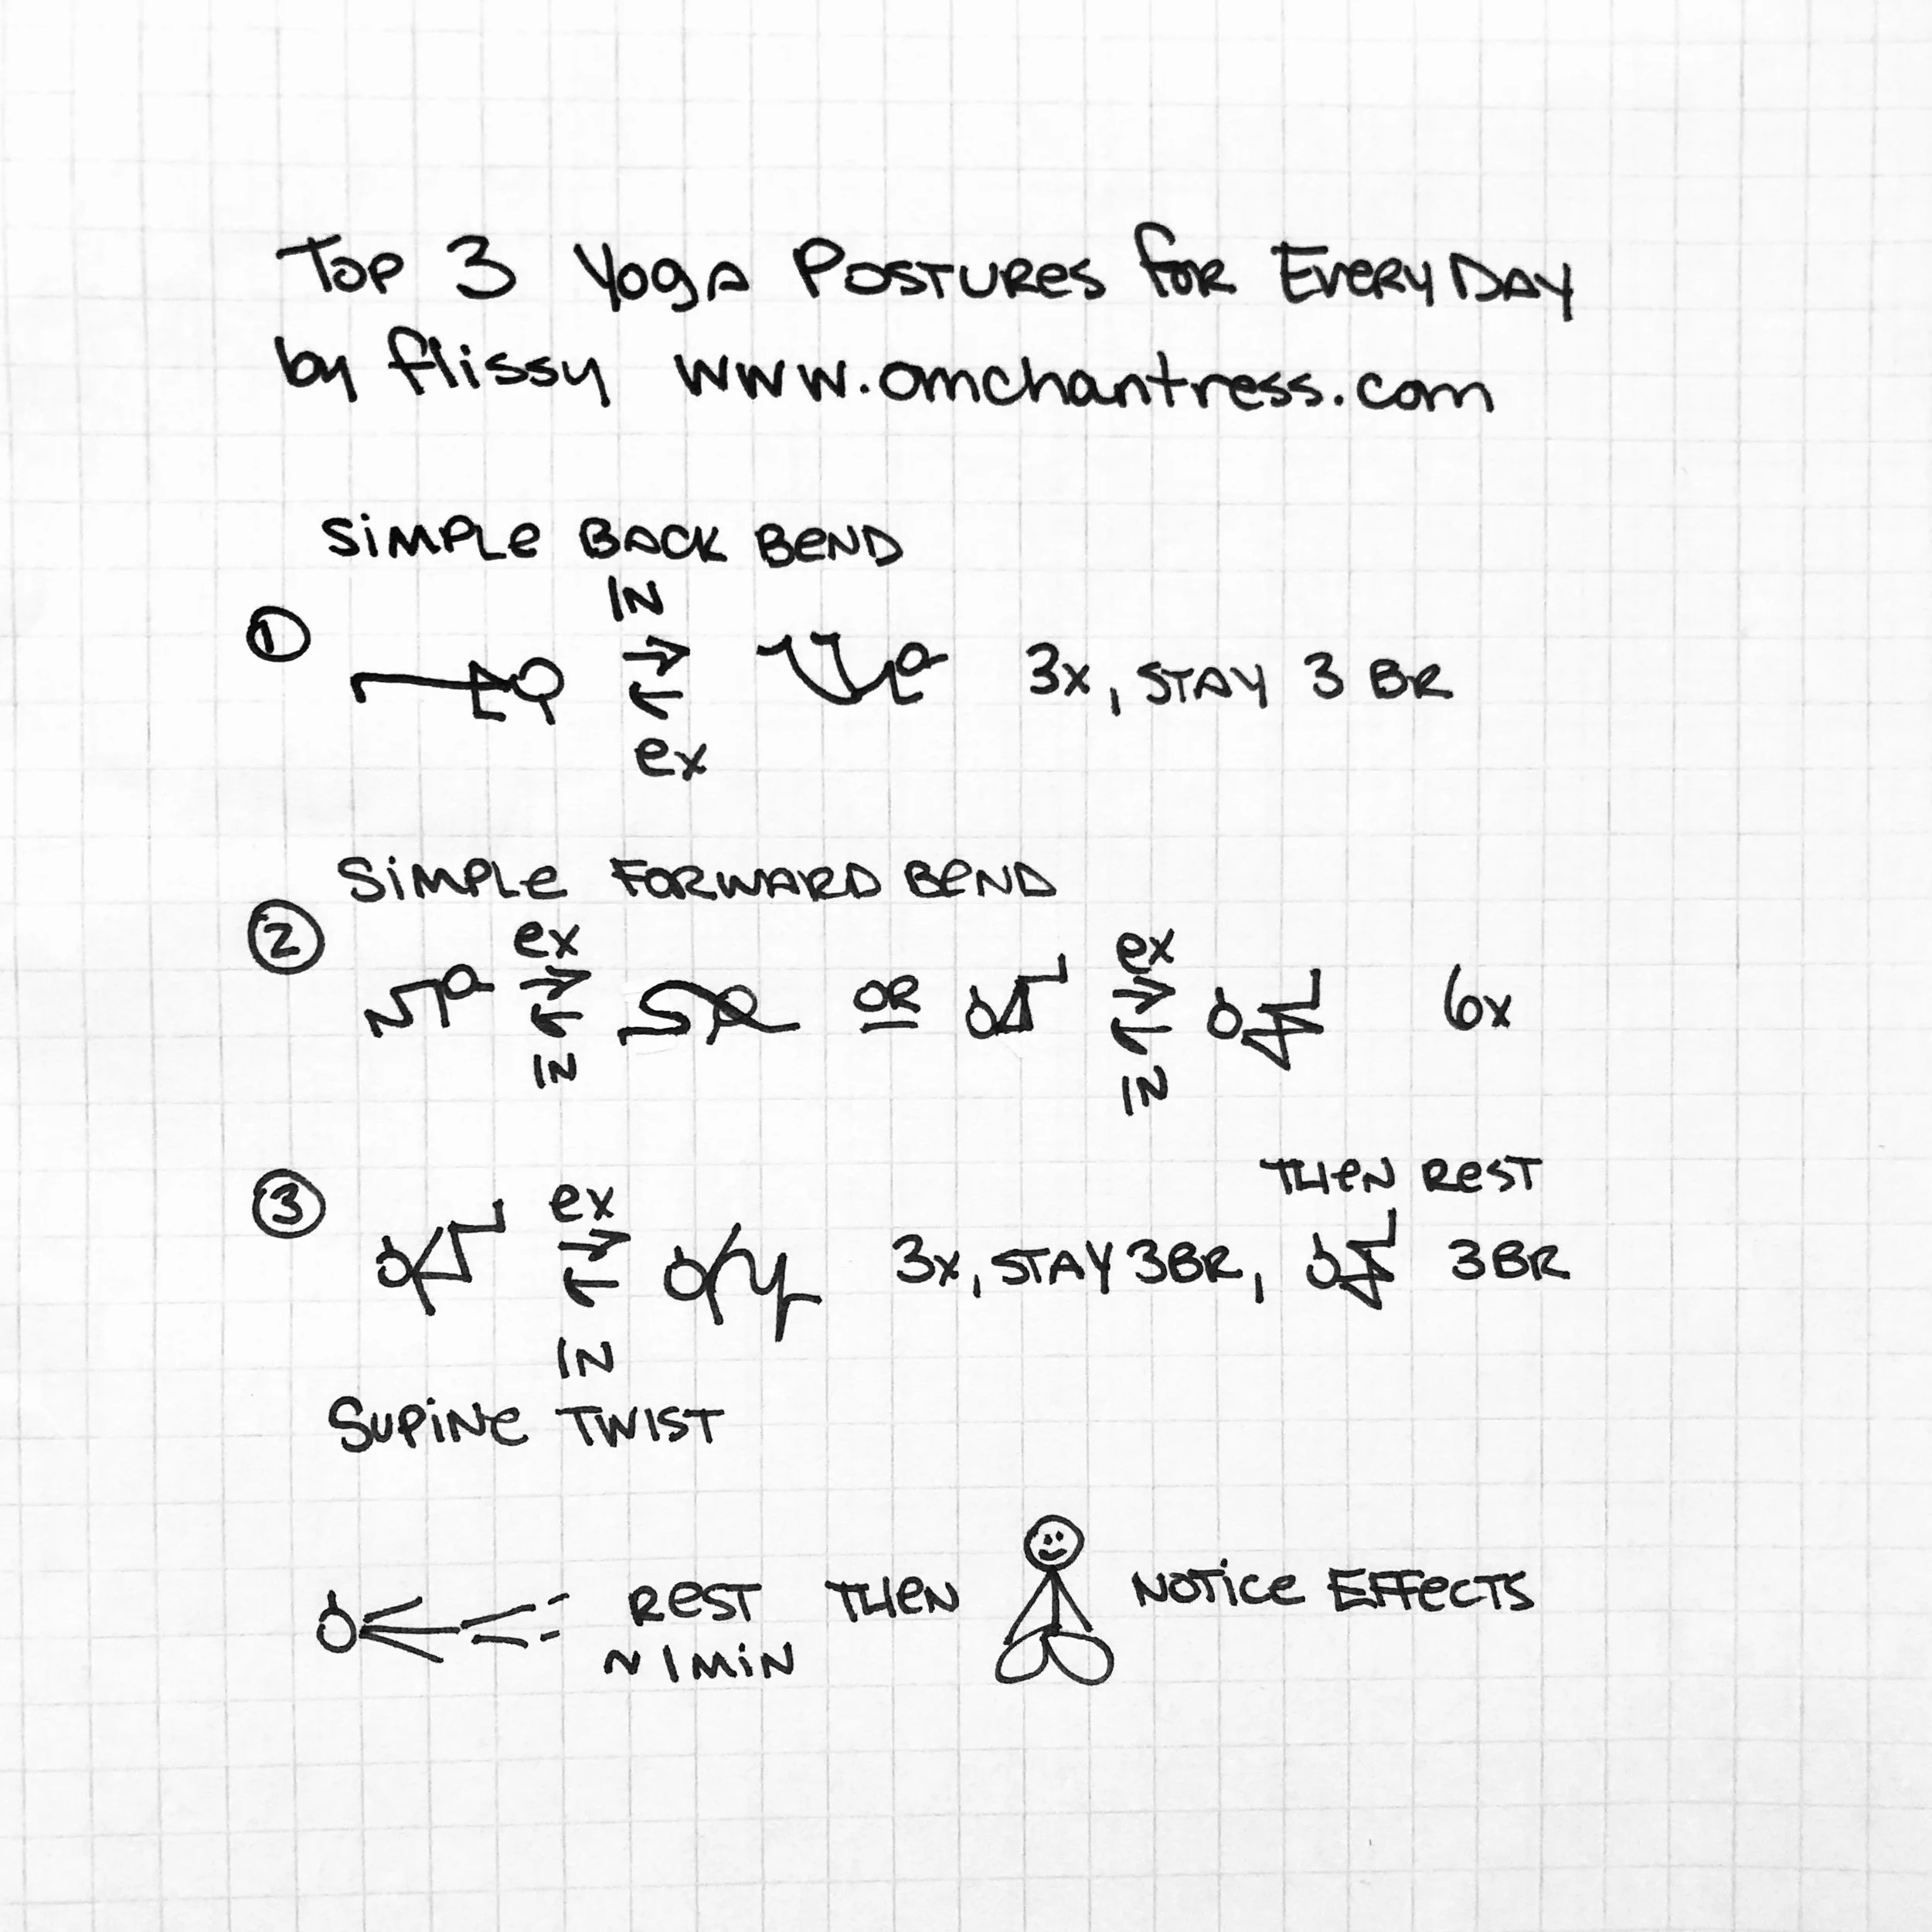 Top 3 Yoga Postures for Every Day
by flissy www.omchantress.com
Simple Back Bend
1 IN
ex
3x, Stay 3 BR
Simple Forward Bend
2 ex
IN
OR
ex
IN
6x
3 ex
IN
3x, Stay 3BR,
Then Rest
3BR
Supine Twist
Rest Then Notice Effects
~1 min